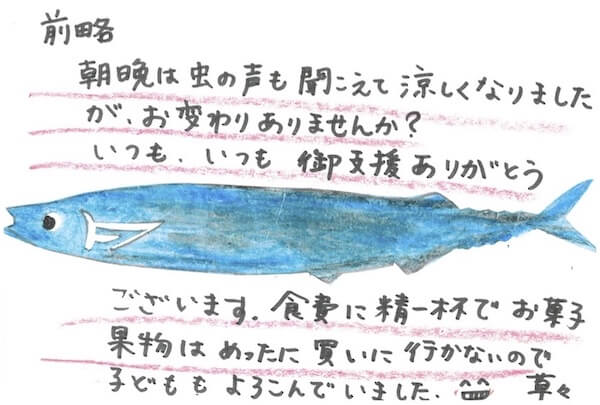 前略
朝晩は虫の声も聞こえて涼しくなりました
が、お変わりありませんか？
いつも、いつも 御支援ありがとう
ございます。食費に精一杯でお菓子
果物はめったに買いに行かないので
子どももよろこんでいました。 草々